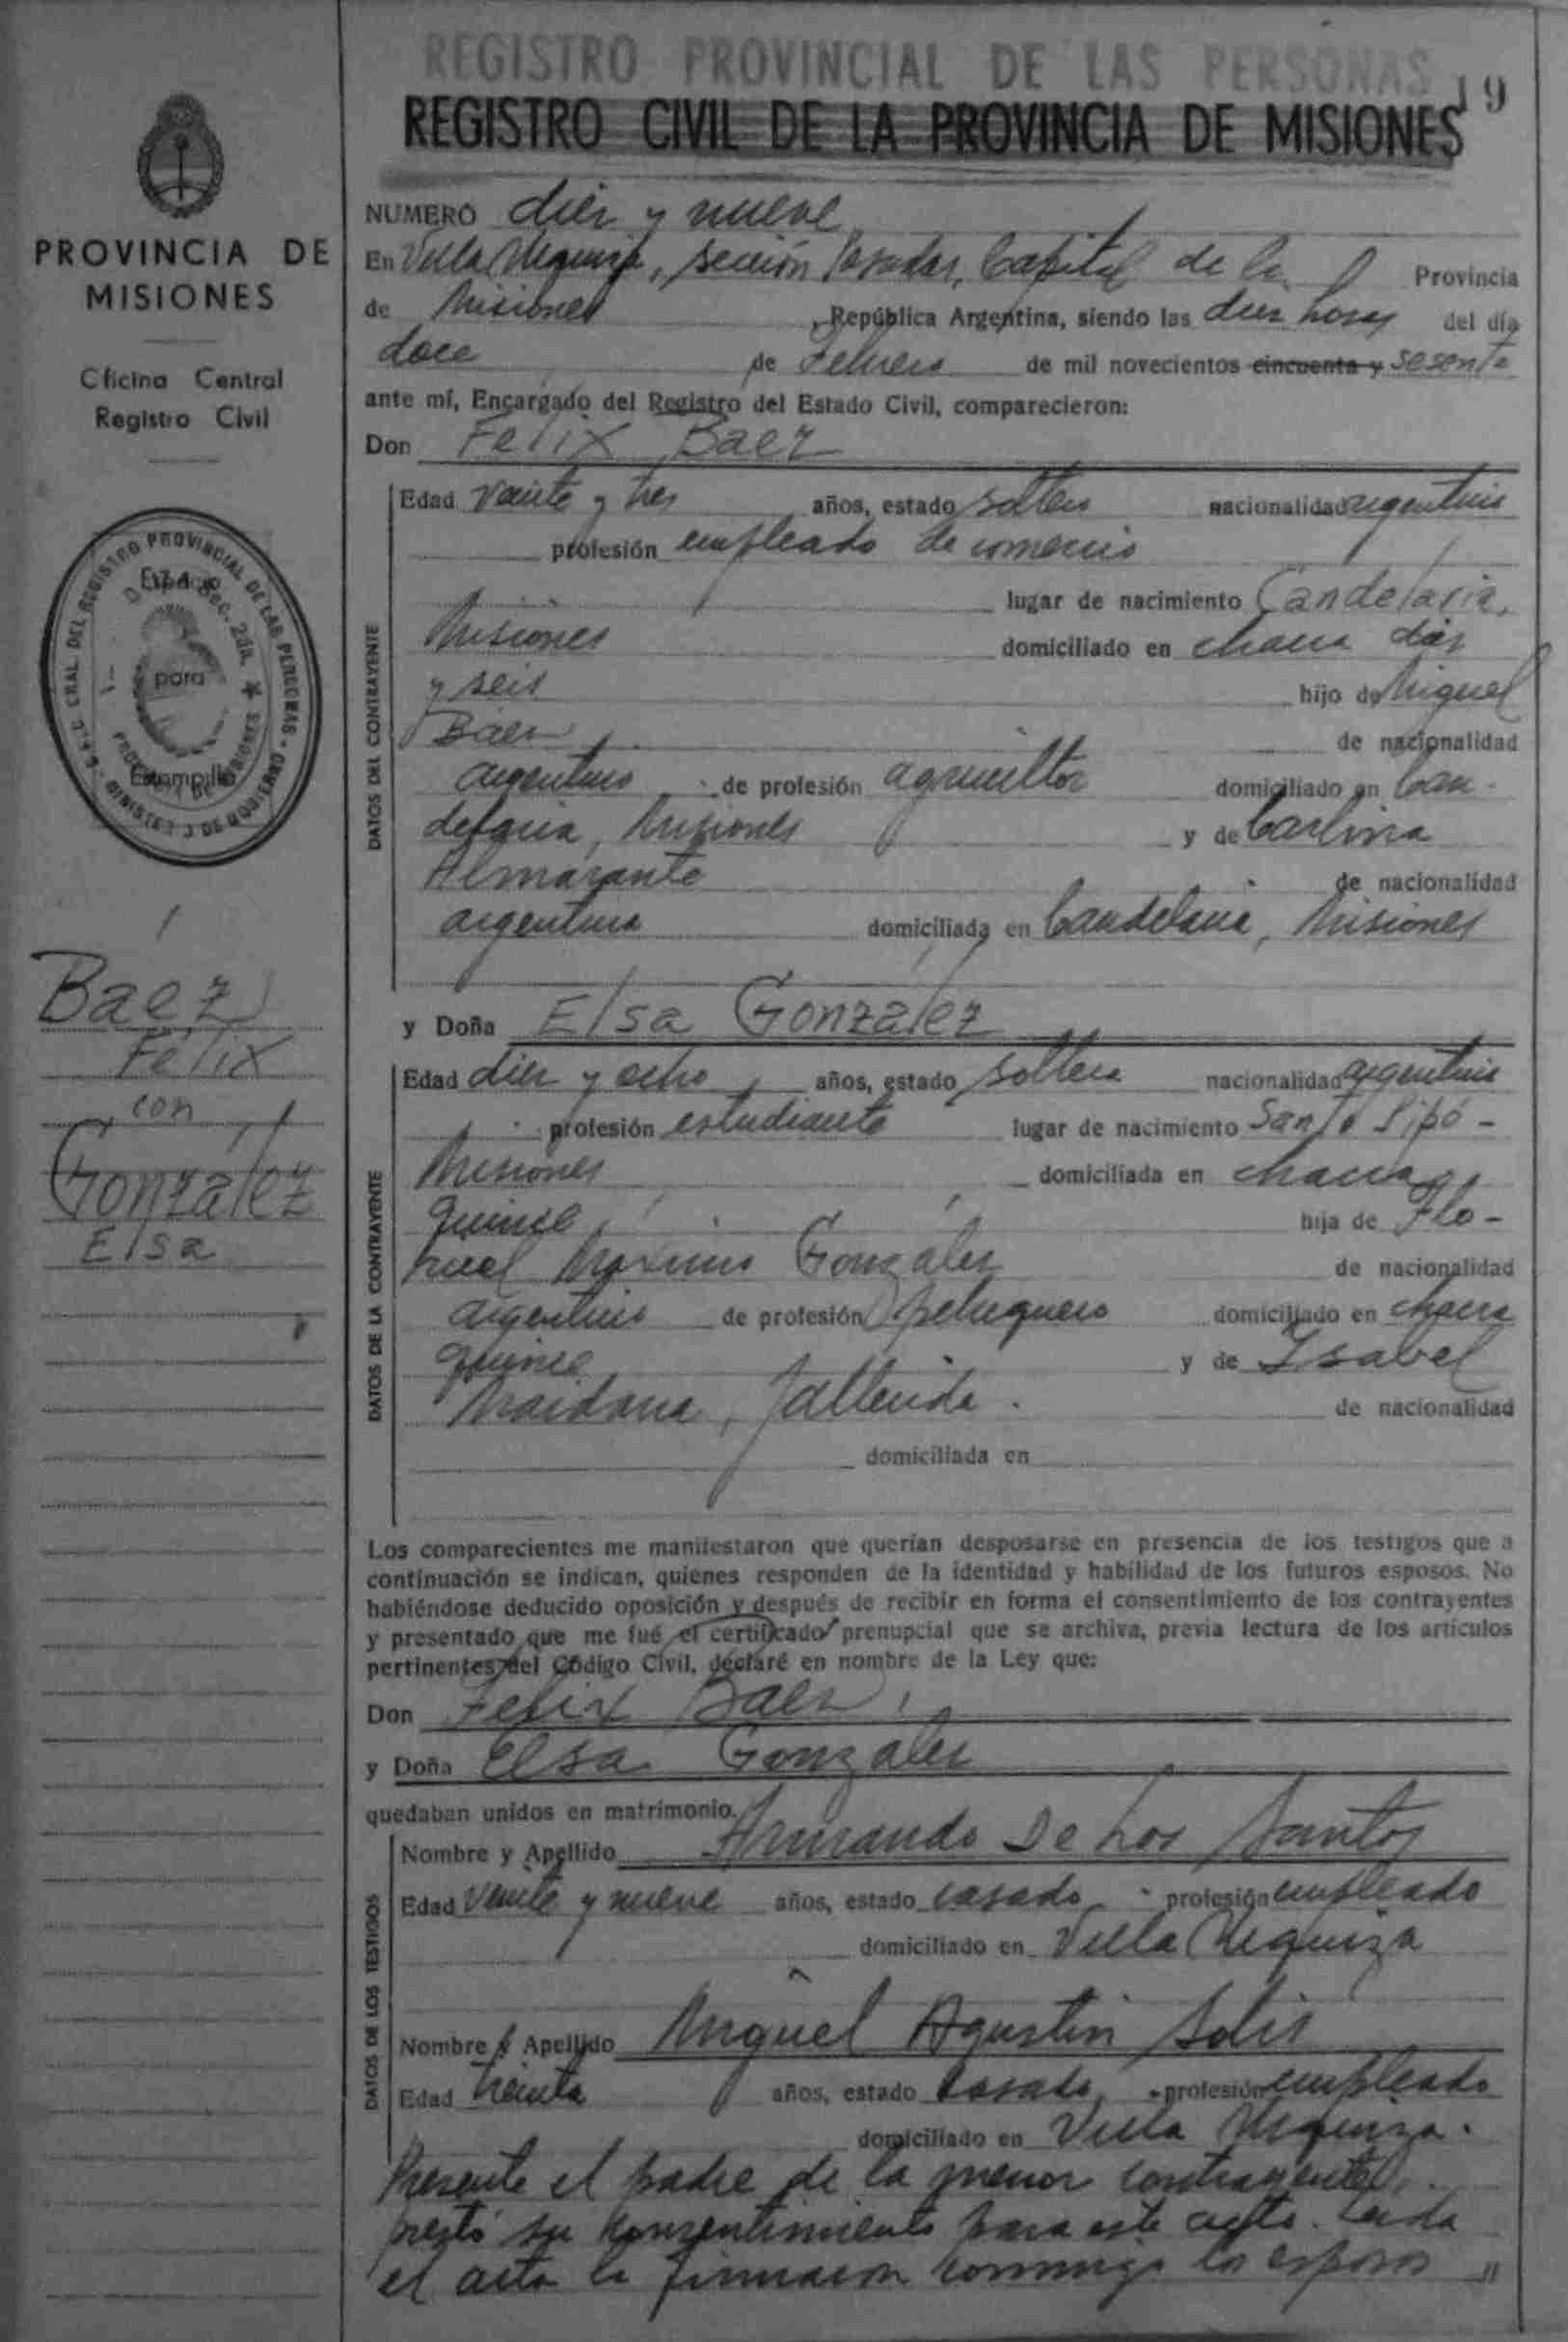 REGISTRO PROVINCIAL DE LAS PERSONAS
19
REGISTRO CIVIL DE LA PROVINCIA DE MISIONES
PROVINCIA DE
MISIONES
Oficina Central
Registro Civil
REGISTRO PROVINCIAL DE LAS PERSONAS
Espacio
para
Estampilla
Baez
Felix
con
González
Elsa
NUMERO diez y nueve
En Villa Urquiza, sección Posadas, Capital de la Provincia
de Misiones, República Argentina, siendo las diez horas del día
doce de Febrero de mil novecientos cincuenta y sesenta
ante mí, Encargado del Registro del Estado Civil, comparecieron:
Don Felix Baez
DATOS DEL CONTRAYENTE
Edad veinte y tres años, estado soltero nacionalidad argentino
profesión empleado de comercio
lugar de nacimiento Candelaria,
Misiones domiciliado en chacra diez
y seis hijo de Miguel
Báez de nacionalidad
argentino de profesión agricultor domiciliado en Can-
delaria, Misiones y de Carlina
Almarante de nacionalidad
argentina domiciliada en Candelaria, Misiones
y Doña Elsa González
DATOS DE LA CONTRAYENTE
Edad diez y ocho años, estado soltera nacionalidad argentina
profesión estudiante lugar de nacimiento Santo Pipó -
Misiones domiciliada en chacra
quince hija de Flo-
Máximo González de nacionalidad
argentino de profesión peluquero domiciliado en chacra
quince y de Isabel
Maidana, fallecida. de nacionalidad
domiciliada en
Los comparecientes me manifestaron que querían desposarse en presencia de los testigos que a
continuación se indican, quienes responden de la identidad y habilidad de los futuros esposos. No
habiéndose deducido oposición y después de recibir en forma el consentimiento de los contrayentes
y presentado que me fué el certificado prenupcial que se archiva, previa lectura de los artículos
pertinentes del Código Civil, declaré en nombre de la Ley que:
Don Felix Baez
y Doña Elsa González
quedaban unidos en matrimonio.
DATOS DE LOS TESTIGOS
Nombre y Apellido Armando De Los Santos
Edad veinte y nueve años, estado casado profesión empleado
domiciliado en Villa Urquiza
Nombre y Apellido Miguel Agustin Solis
Edad treinta años, estado casado, profesión empleado
domiciliado en Villa Urquiza.
Presente el padre de la menor contrayente,
prestó su consentimiento para este acto. Leída
el acta la firmaron conmigo los esposos "